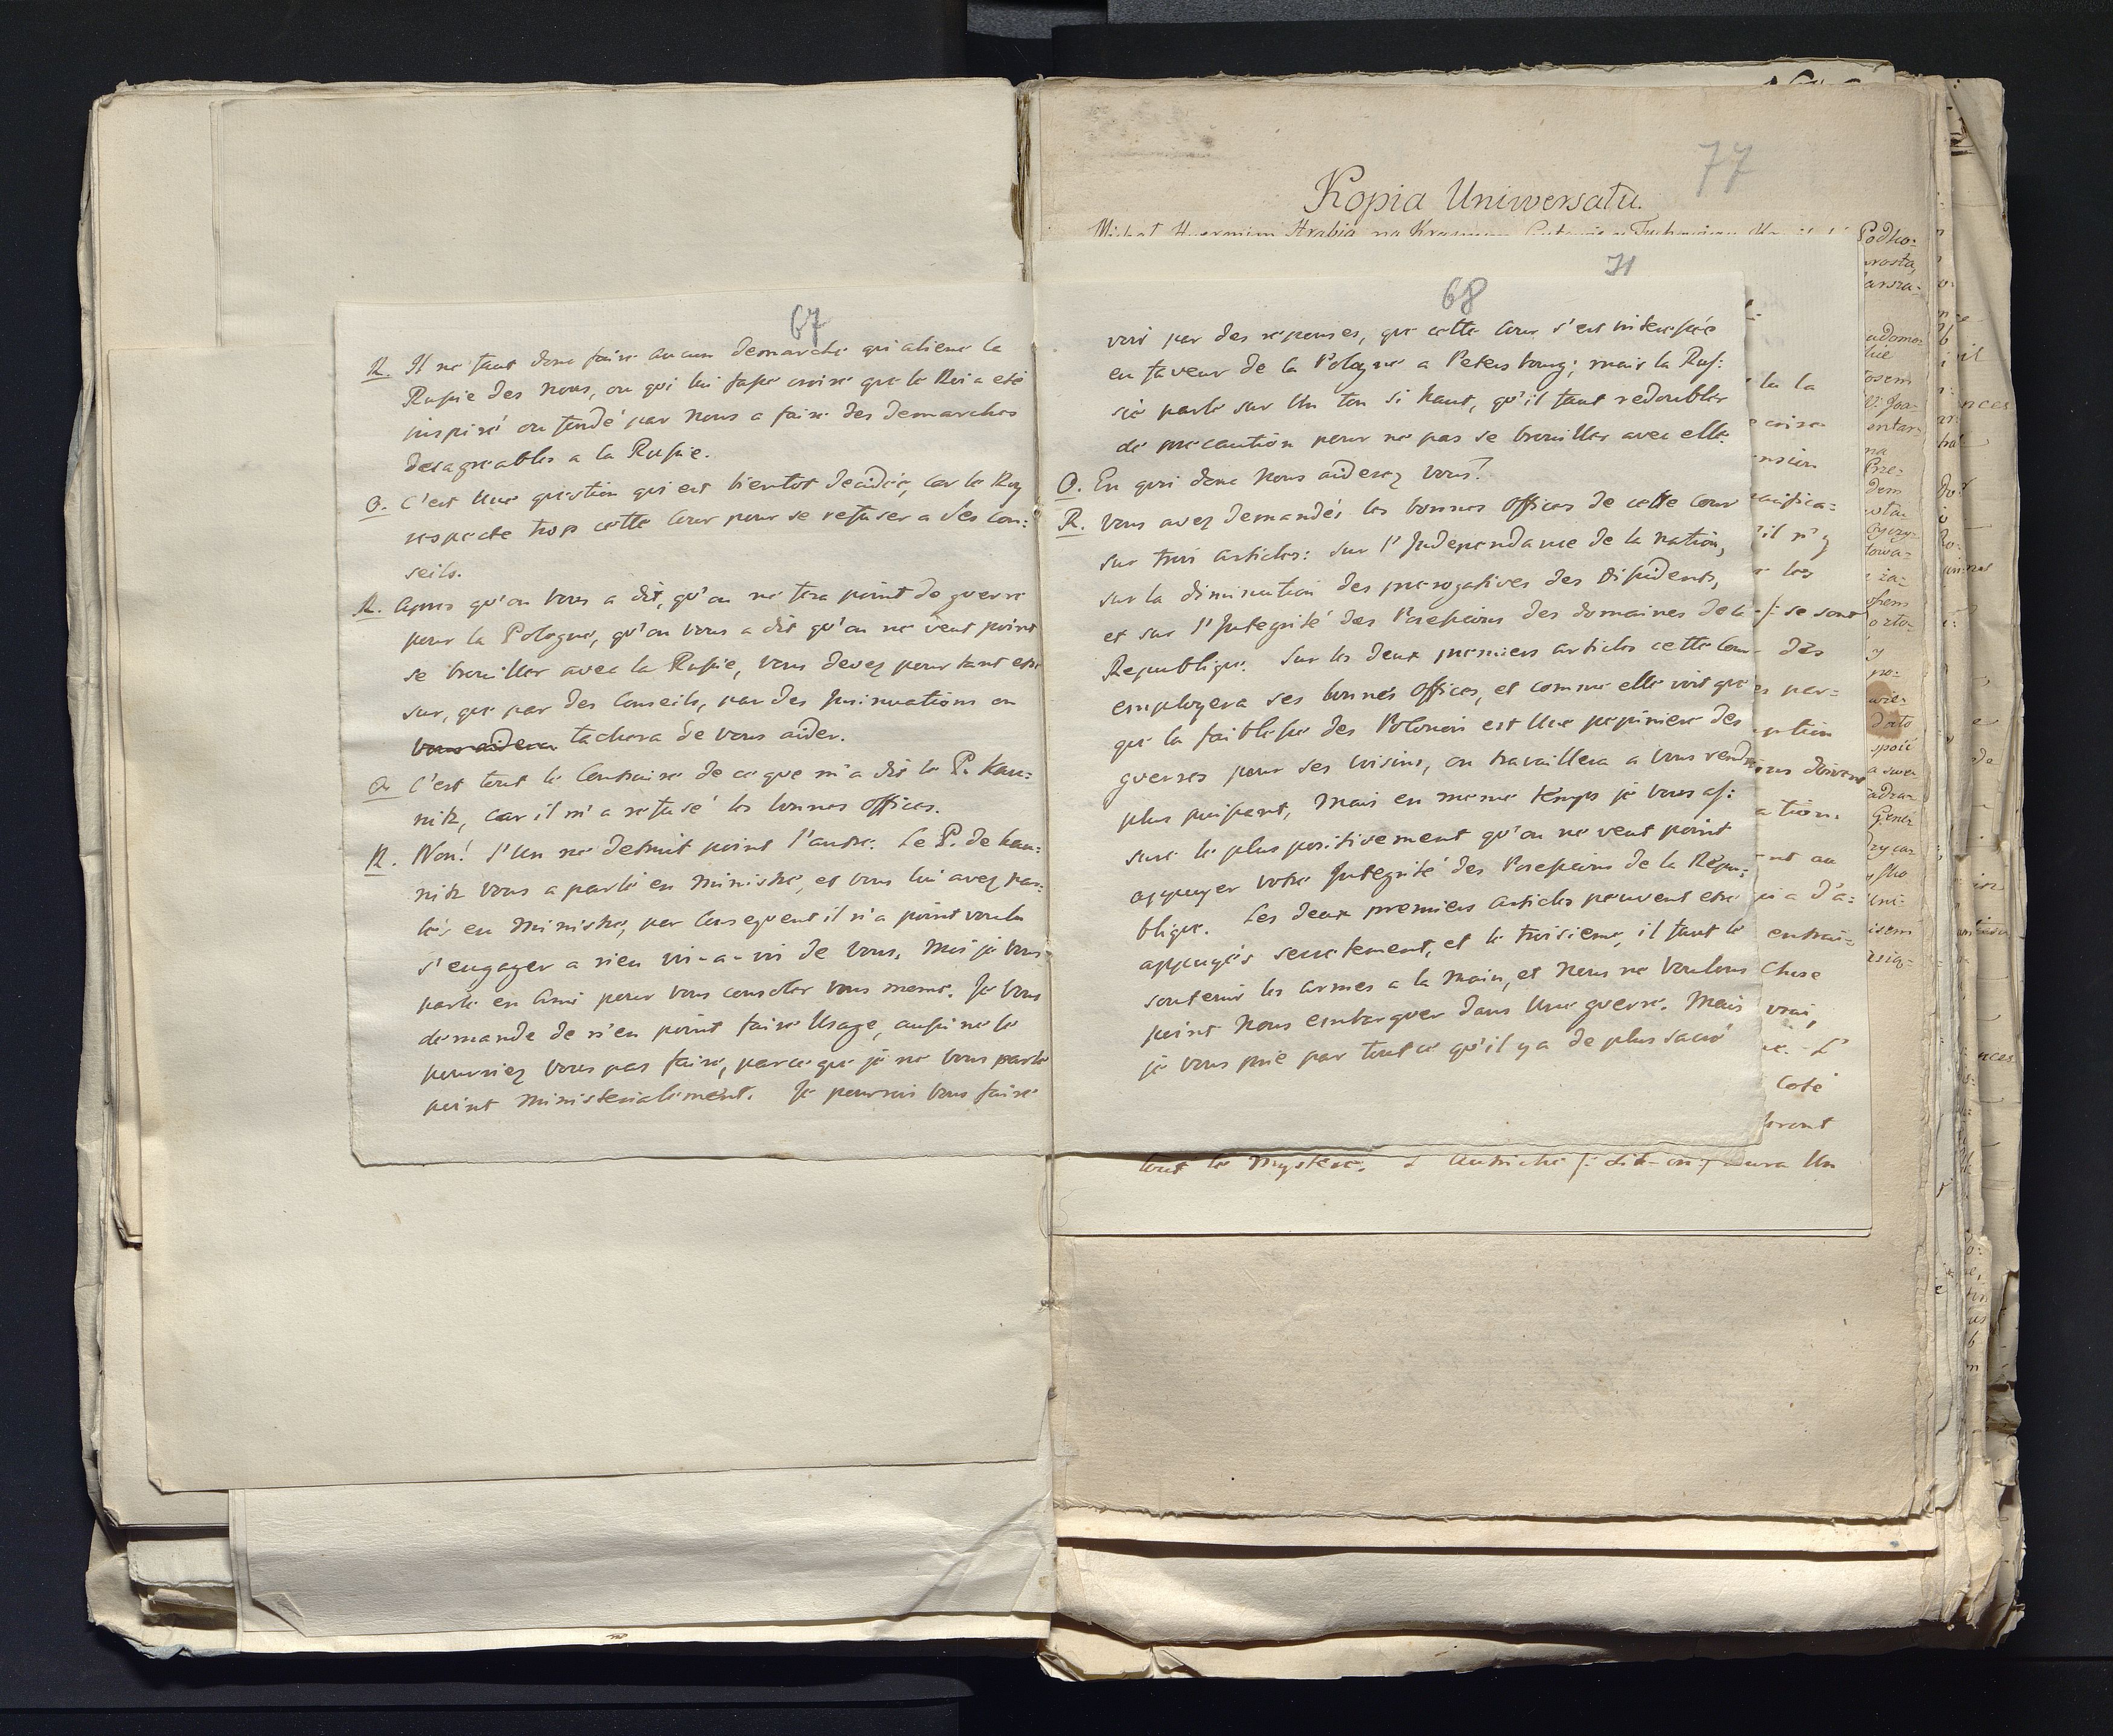 67
R. Il ne faut donc faire aucun demarche qui aliene la
Russie des nous, ou qui lui fasse croire que le Roi a eté
inspiré ou fondé par nous a faire des demarches
desagreables a la Russie.
Q. C'est une question qui est bientot decidée, car le Roy
respecte trop cette Cour pour se refuser a ses Con:
seils.
R. Apres qu'on vous a dit, qu'on ne fera point de guerre
pour la Pologne, qu'on vous a dit qu'on ne veut point
se brouiller avec la Russie, vous devez pourtant etre
sur, que par des Conseils, par des Insinuations on
vous aidera tachera de vous aider.
Q. C'est tout le Contraire de ce que m'a dit le P. Kau:
nitz, car il m'a refusé les bonnes offices.
R. Non! l'un ne detruit point l'autre. Le P. de Kau:
nitz vous a parlé en Ministre, et vous lui avez par:
lés en Ministre, par Consequent il n'a point voulu
s'engager a rien vis-a-vis de vous. Moi je vous
parle en Ami pour vous consoler vous meme. Je vous
demande de n'en point faire Usage, aussi ne le
pourriez vous pas faire, parce que je ne vous parle
point Ministerialement. Je pourrois vous faire
77
Kopia Uniwersału.
71
68
voir par des reponses, que cette Cour s'est interessée
en faveur de la Pologne a Petersbourg; mais la Rus:
sie parle sur Un ton si haut, qu'il faut redoubler
de precaution pour ne pas se brouiller avec elle.
Q. En quoi donc nous aiderez vous?
R. Vous avez demandés les bonnes offices de cette Cour
sur trois articles: sur l'Independance de la nation,
sur la diminution des prerogatives des Dissidents,
et sur l'Integrité des Possessions des domaines de la
Republique. Sur les deux premiers articles cette Cour
employera ses bonnes offices, et comme elle voit que
que la faiblesse des Polonois est Une pepiniere des
guerres pour ses voisins, on travaillera a vous rendre
plus puissant, Mais en meme temps je vous as:
sure le plus positivement qu'on ne veut point
appuyer votre Integrité des Possessions de la Repu:
blique. Les deux premiers articles peuvent etre
appuyés secretement, et le troisieme, il faut le
soutenir les armes a la main, et Nous ne voulons
point Nous embarquer dans Une guerre. Mais
je vous prie par tout ce qu'il y a de plus sacré
tout le Mystere. L'Autriche /: dit-on :/ aura Un